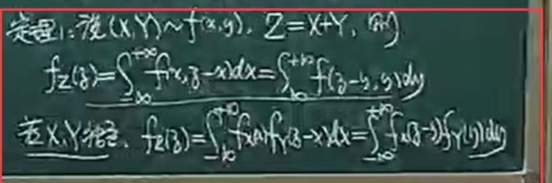 定理1:设(X,Y)~f(x,y), Z=X+Y, 则
f_Z(z)=∫_{-∞}^{+∞} f(x,z-x)dx=∫_{-∞}^{+∞} f(z-y,y)dy
若X,Y独立, f_Z(z)=∫_{-∞}^{+∞} f_X(x)f_Y(z-x)dx=∫_{-∞}^{+∞} f_X(z-y)f_Y(y)dy